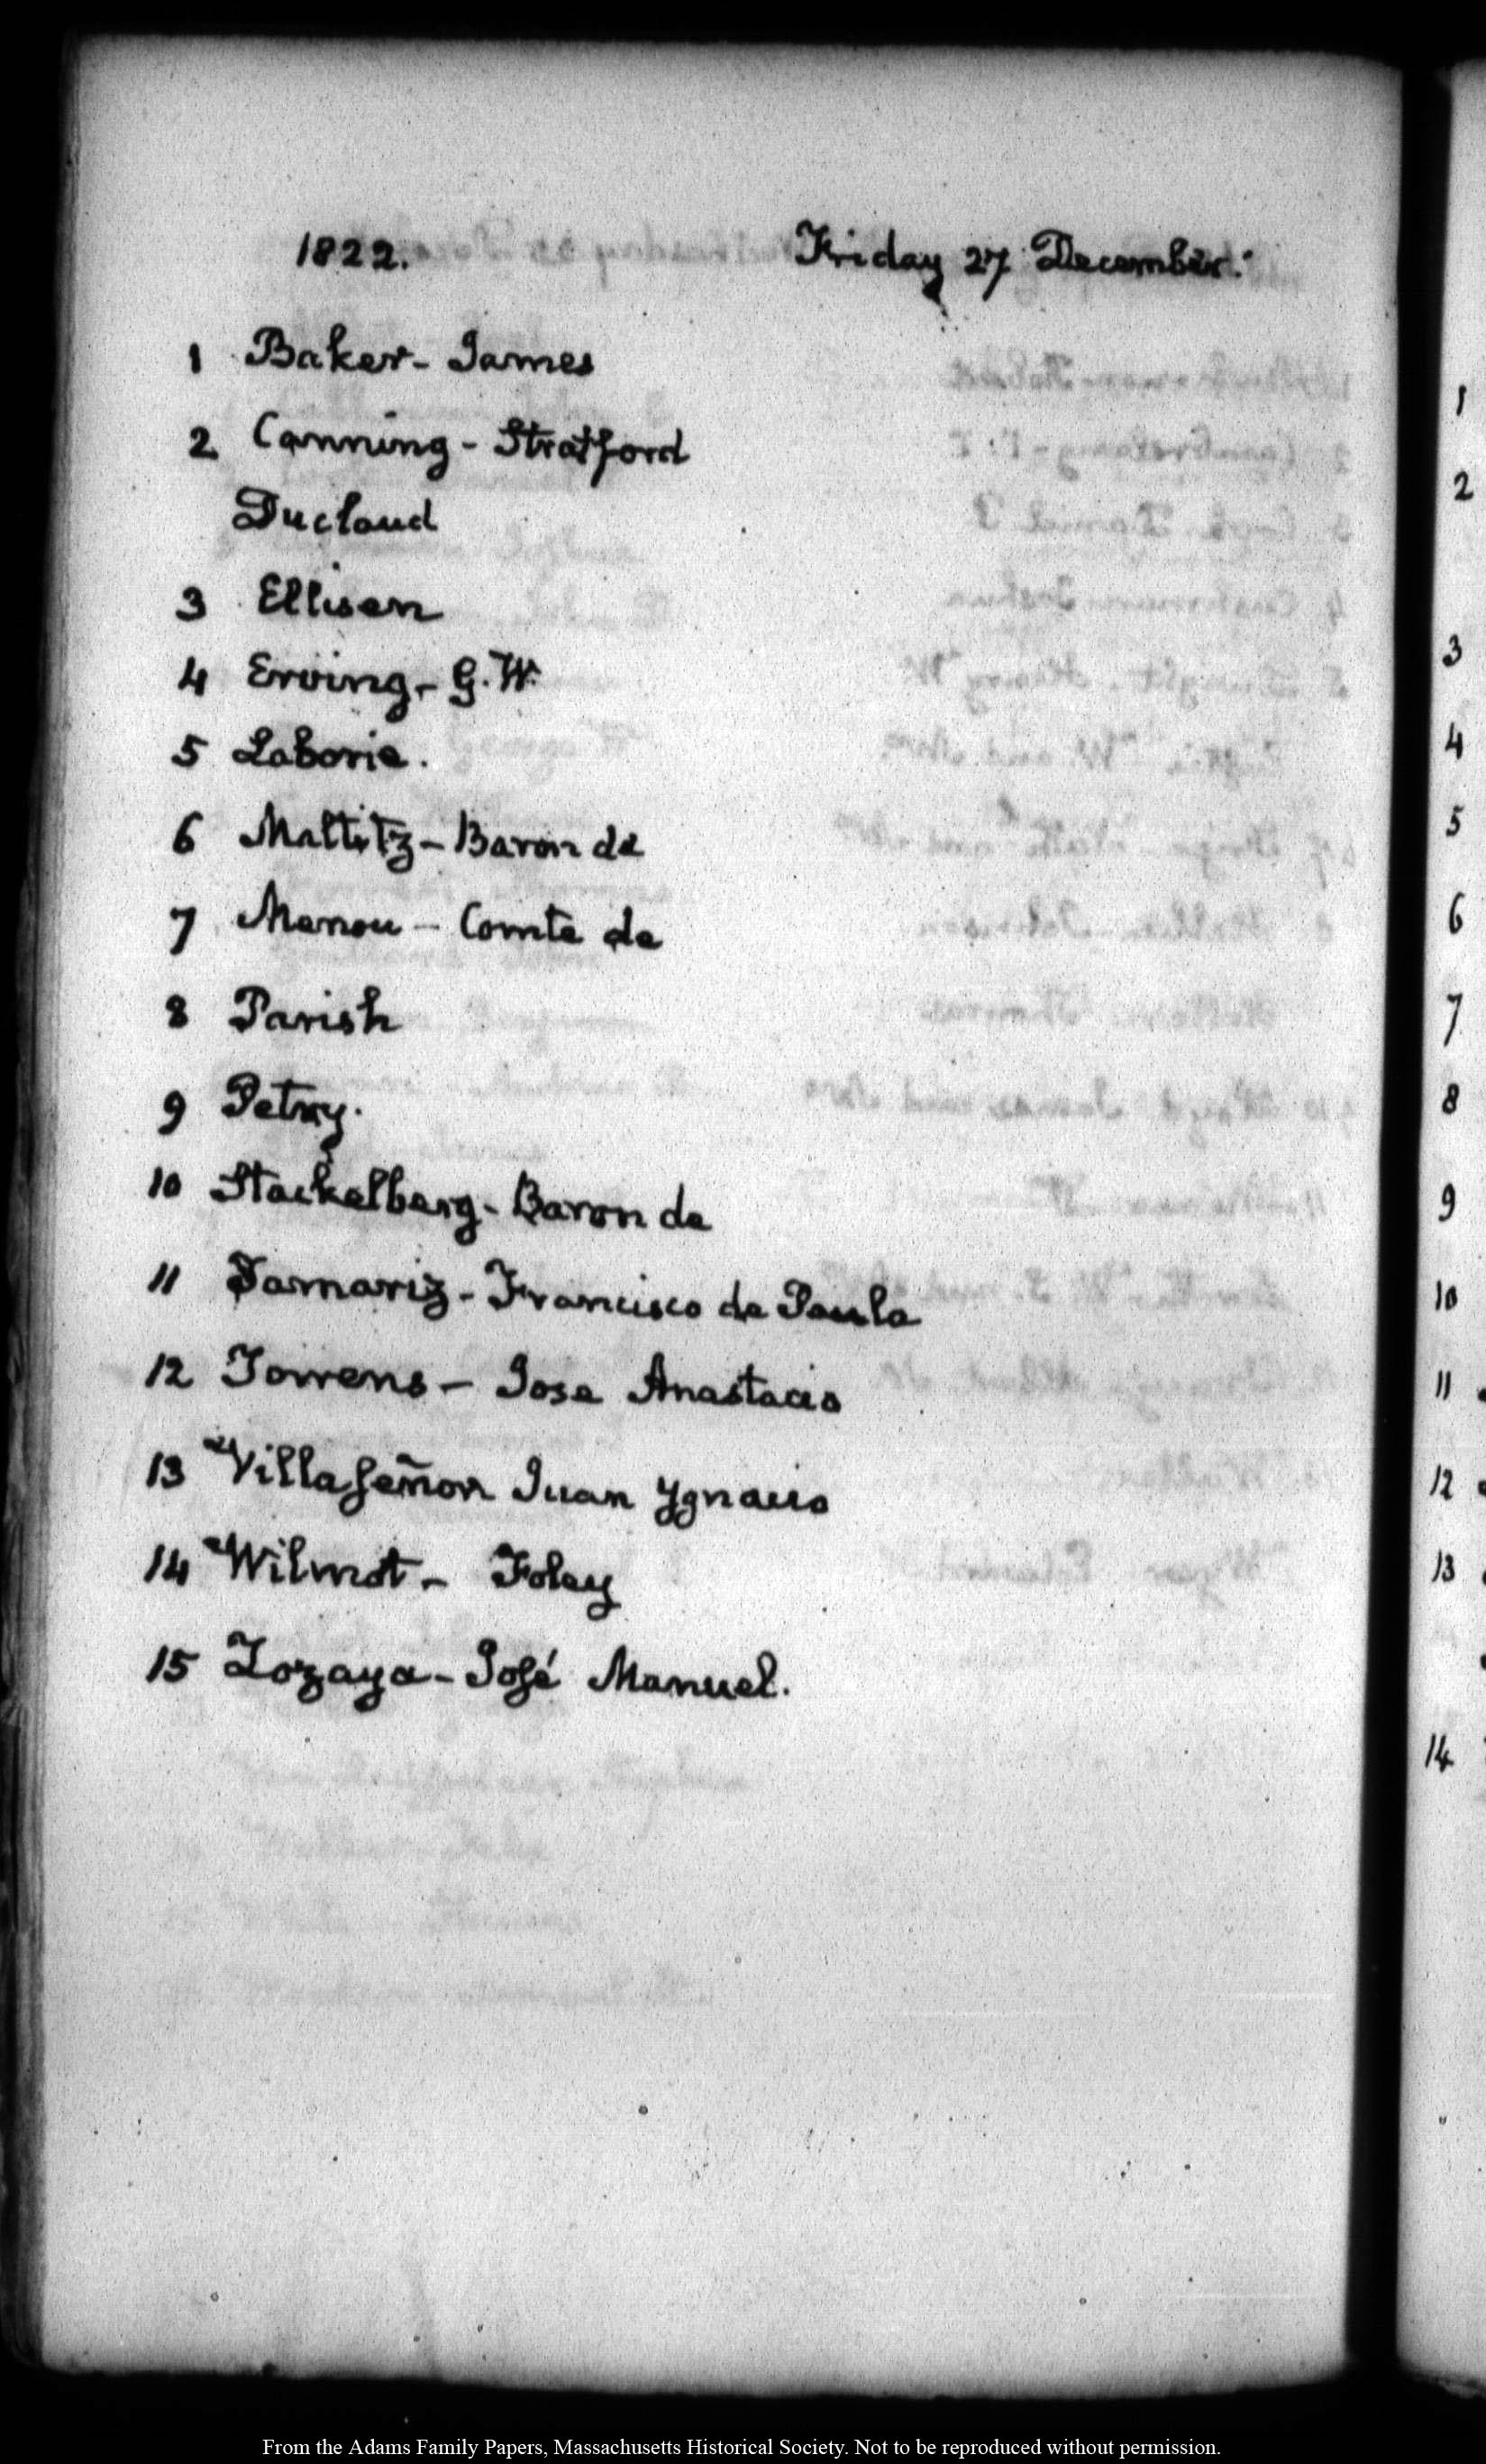 1822. Friday 27 December.
1 Baker - James
2 Canning - Stratford
Ducloud
3 Ellisen
4 Erving - G. W.
5 Laborie.
6 Maltitz - Baron de
7 Menou - Comte de
8 Parish
9 Petry.
10 Stackelberg - Baron de
11 Tamariz - Francisco de Paula
12 Torrens - Jose Anastacio
13 Villaseñor Juan Ygnacio
14 Wilmot - Foley
15 Zozaya - José Manuel.
1
2
3
4
5
6
7
8
9
10
11
12
13
14
From the Adams Family Papers, Massachusetts Historical Society. Not to be reproduced without permission.